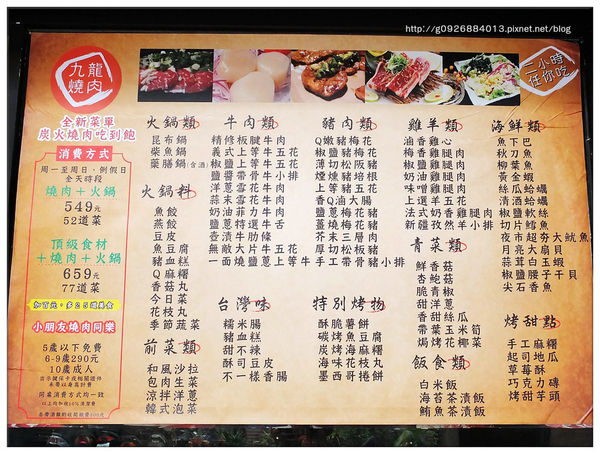 http://g0926884013.pixnet.net/blog
九龍
燒肉
二小時
任你吃
全新菜單
炭火燒肉吃到飽
消費方式
週一至周日．例假日
全天時段
燒肉＋火鍋
549元
52道菜
頂級食材
＋燒肉＋火鍋
659元
77道菜
加百元，多25道美食
小朋友燒肉同樂
5歲以下免費
6-9歲290元
10歲成人
同桌消費方式均一致
以上均加收10%清潔費
火鍋類
昆布鍋
柴魚鍋
藥膳鍋(含酒)
火鍋料
魚餃
燕餃
豆皮
魚豆腐
豬血糕
Q麻糬
香菇丸
今日菜
花枝丸
季節蔬菜
前菜類
和風沙拉
包肉生菜
涼拌洋蔥
韓式泡菜
牛肉類
精修板腱牛肉
義式上等牛五花
椒鹽上等牛五花
鹽醬帶骨牛小排
洋蔥雪花牛肉
蒜末雪花牛肉
奶油菲力牛肉
鹽蔥特選牛舌
壺漬牛肋條
無敵大片牛五花
一面燒鹽蔥上等牛
台灣味
糯米腸
豬血糕
甜不辣
酥司豆皮
不一樣香腸
豬肉類
Q嫩豬梅花
椒鹽豬梅花
薄切松阪豬
煙燻豬培根
香Q滷大腸
上選豬五花
鹽蔥梅花豬
蓋燒梅花豬
芥末三層肉
薄切松板豬
手工帶骨豬小排
特別烤物
酥脆薯餅
碳烤魚豆腐
炭烤海麻糬
海味花枝丸
墨西哥捲餅
雞羊類
滷香雞心
梅香雞腿肉
椒鹽雞腿肉
奶油雞腿肉
味噌雞腿肉
上選羊五花
法式奶香雞腿肉
新疆孜然羊小排
青菜類
鮮香菇
杏鮑菇
脆青椒
甜洋蔥
香甜絲瓜
帶葉玉米筍
焗烤花椰菜
飯食類
白米飯
海苔茶漬飯
鮪魚茶漬飯
海鮮類
魚下巴
秋刀魚
柳葉魚
黃金蝦
絲瓜蛤蠣
清酒蛤蠣
椒鹽軟絲
切片鱈魚
夜市超夯大魷魚
月亮大扇貝
蒜茸白玉蝦
椒鹽腰子干貝
尖石香魚
烤甜點
手工麻糬
起司地瓜
草莓酥
巧克力磚
烤甜芋頭